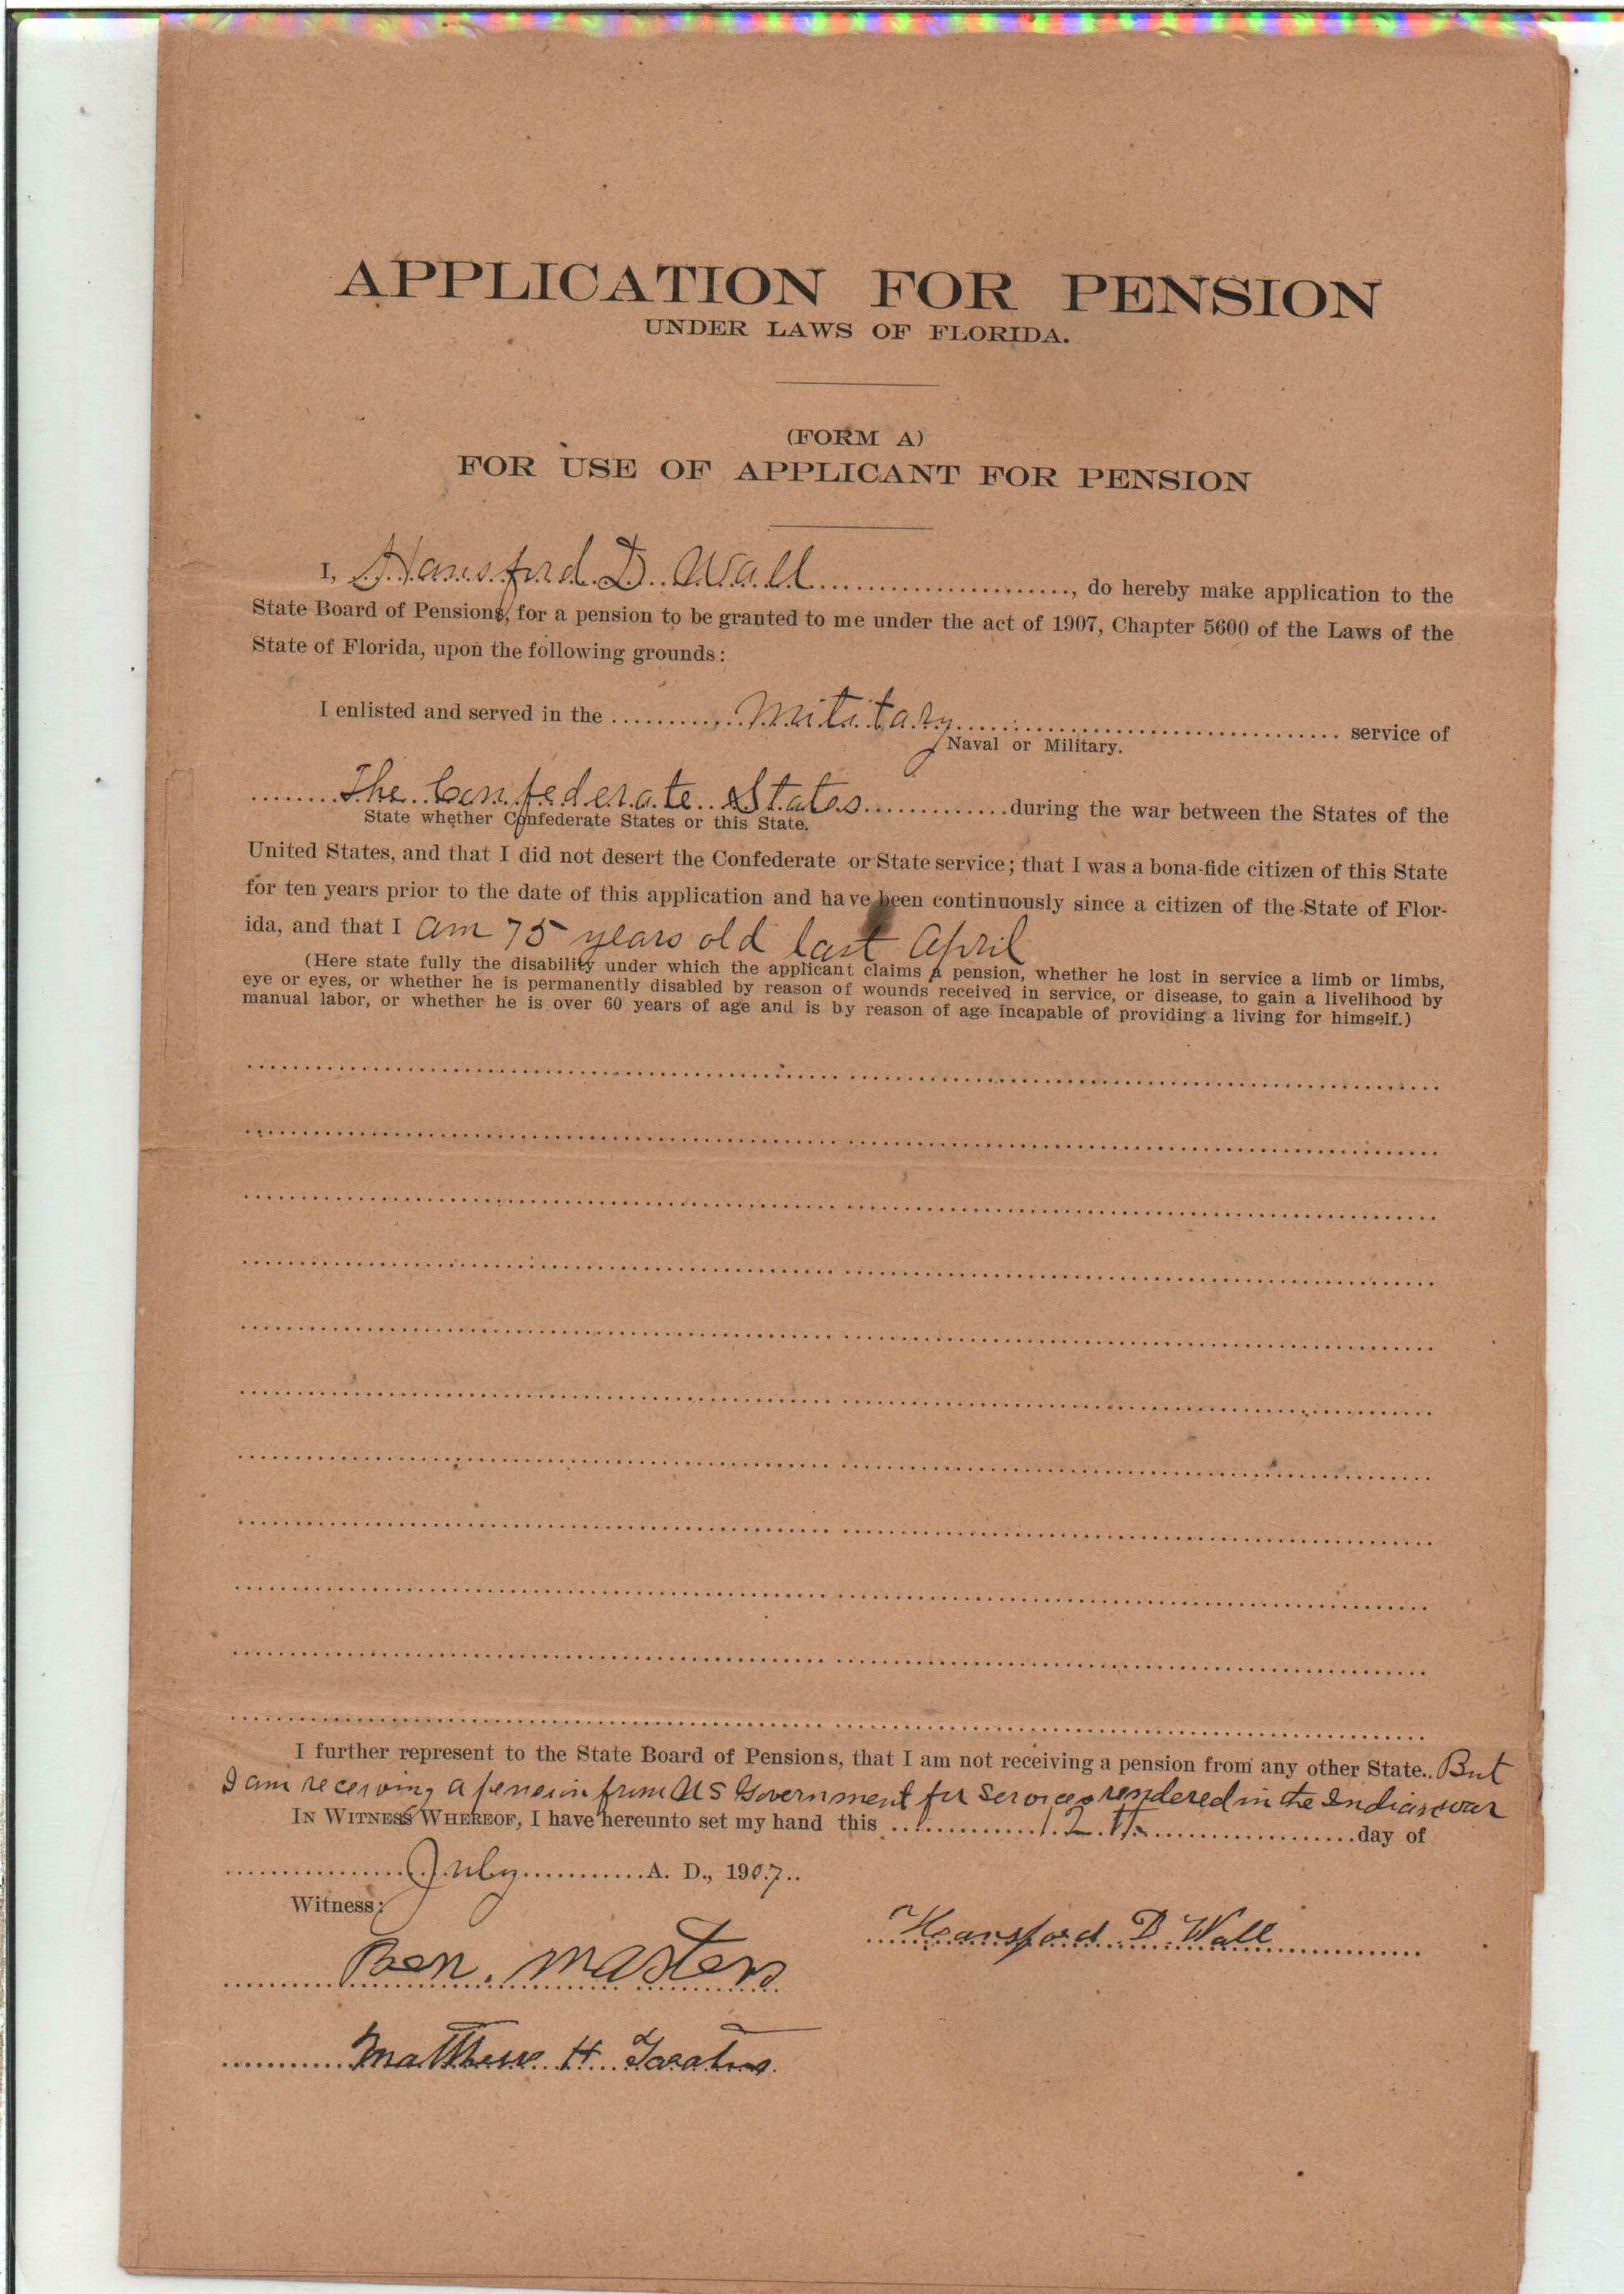 APPLICATION FOR PENSION
UNDER LAWS OF FLORIDA.
(FORM A)
FOR USE OF APPLICANT FOR PENSION
I, Hansford D. Wall, do hereby make application to the
State Board of Pensions, for a pension to be granted to me under the act of 1907, Chapter 5600 of the Laws of the
State of Florida, upon the following grounds:
I enlisted and served in the Military service of
Naval or Military.
The Confederate States during the war between the States of the
State whether Confederate States or this State.
United States, and that I did not desert the Confederate or State service; that I was a bona-fide citizen of this State
for ten years prior to the date of this application and have been continuously since a citizen of the State of Flor-
ida, and that I am 75 years old last April
(Here state fully the disability under which the applicant claims a pension, whether he lost in service a limb or limbs,
eye or eyes, or whether he is permanently disabled by reason of wounds received in service, or disease, to gain a livelihood by
manual labor, or whether he is over 60 years of age and is by reason of age incapable of providing a living for himself.)
I further represent to the State Board of Pensions, that I am not receiving a pension from any other State. But
I am receiving a pension from US Government for services rendered in the Indian war
IN WITNESS WHEREOF, I have hereunto set my hand this 12th day of
July A. D., 1907
Witness:
Hansford D Wall
Ben. Masters
Matthew H.